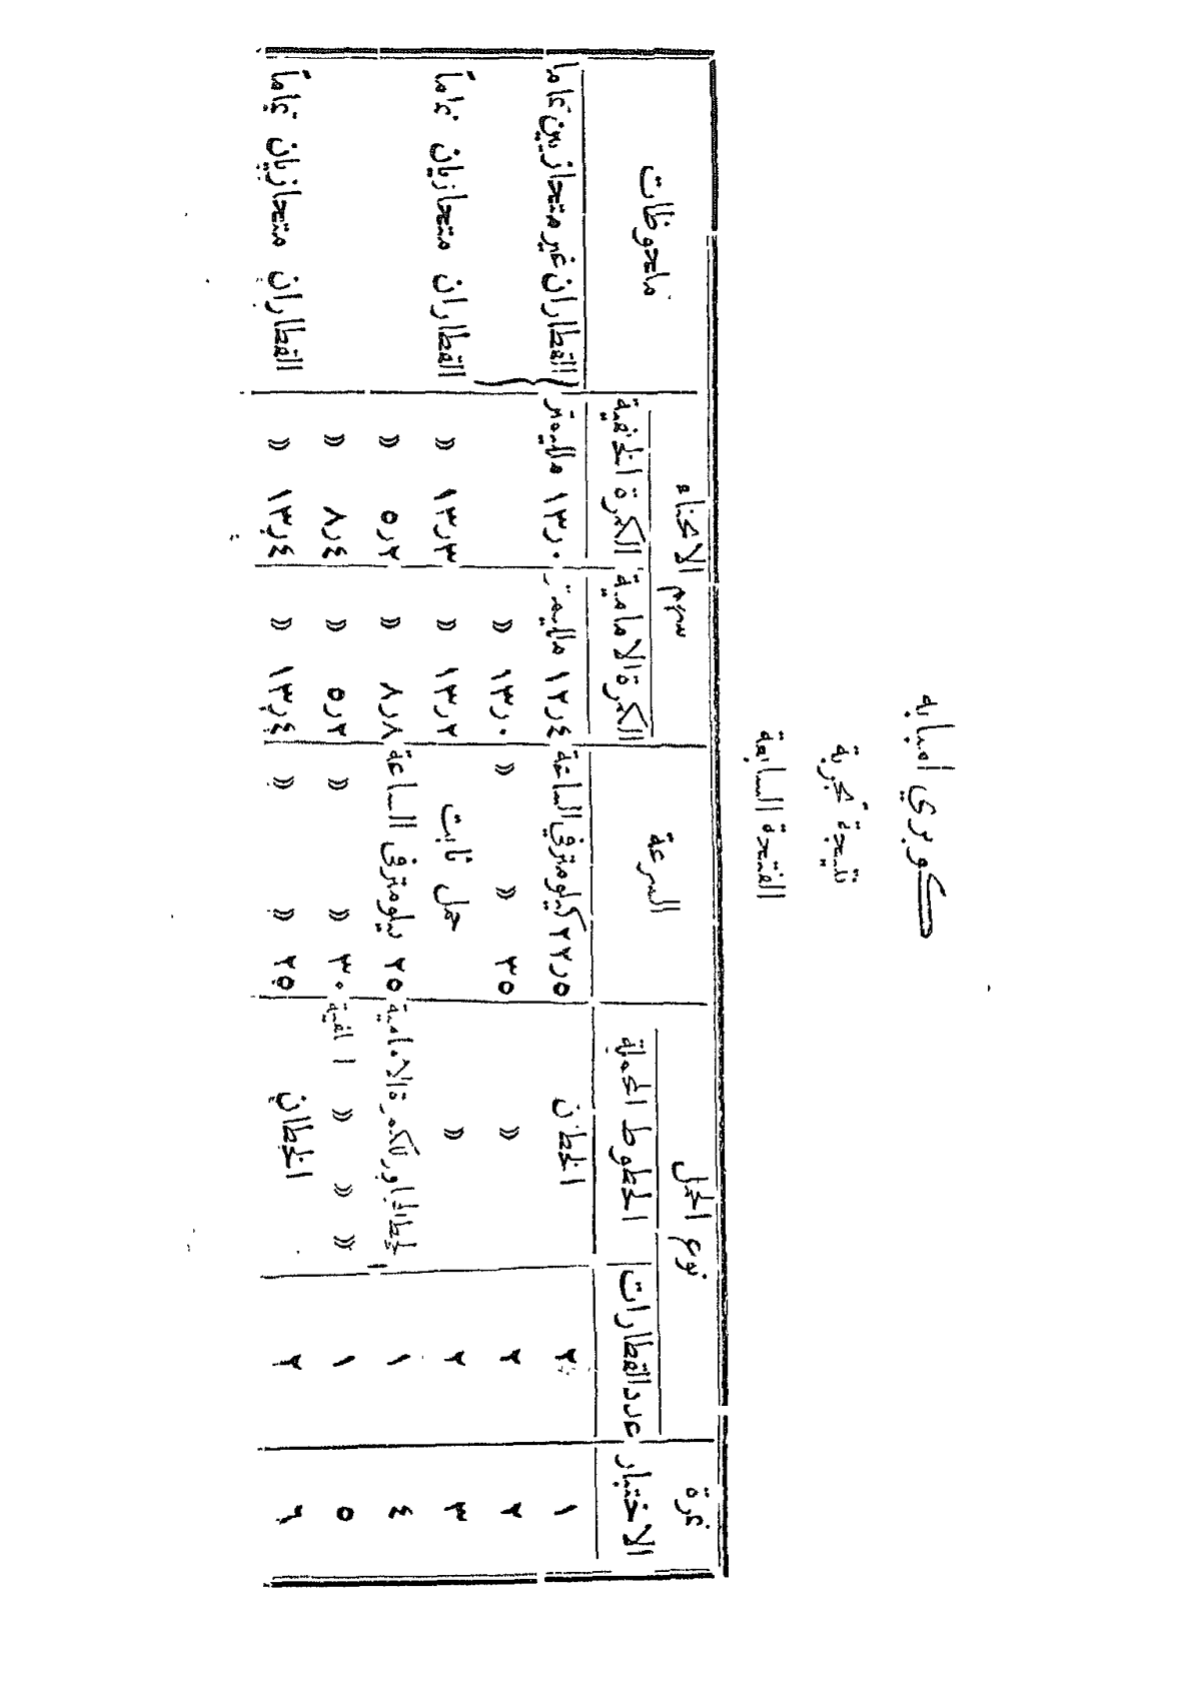 كوبري امبابه
نتيجة تجربة
الفتحة السابعة
نمرة الاختبار نوع الحمل السرعة سهم الانحناء ملحوظات
عدد القطارات الخطوط المحملة الكمرة الامامية الكمرة الخلفية
١ ٢ الخطان ٢٢٫٥ كيلومتر في الساعة ١٢٫٤ ملليمتر ١٣٫٠ ملليمتر القطاران غير متحازيين تماما
٢ ٢ » ٣٥ » » ١٣٫٠ »
٣ ٢ » حمل ثابت ١٣٫٢ » ١٣٫٣ » القطاران متحازيان تماماً
٤ ١ الخط المجاور للكمرة الامامية ٢٥ كيلومتر في الساعة ٨٫٨ » ٥٫٢ »
٥ ١ » » » الخلفية ٣٠ » » ٥٫٢ » ٨٫٤ »
٦ ٢ الخطان ٢٥ » » ١٣٫٤ » ١٣٫٤ » القطاران متحازيان تماماً